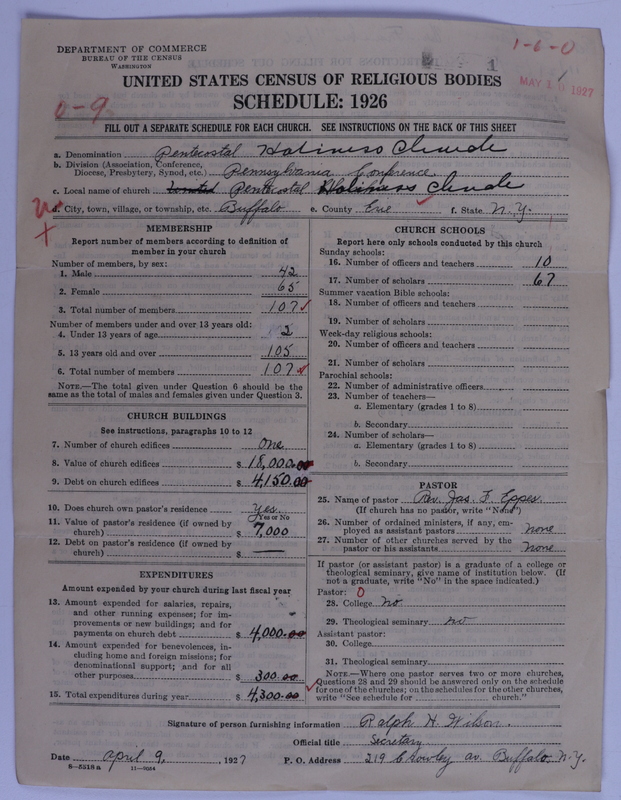 1-6-0
1
DEPARTMENT OF COMMERCE
BUREAU OF THE CENSUS
WASHINGTON
MAY 1927
UNITED STATES CENSUS OF RELIGIOUS BODIES
0-9
SCHEDULE: 1926
FILL OUT A SEPARATE SCHEDULE FOR EACH CHURCH. SEE INSTRUCTIONS ON THE BACK OF THIS SHEET
a. Denomination Pentecostal Holiness Church
b. Division (Association, Conference, Diocese, Presbytery, Synod, etc.) Pennsylvania Conference
c. Local name of church Pentecostal Holiness Church
d. City, town, village, or township, etc. Buffalo e. County Erie f. State N.Y.
MEMBERSHIP
Report number of members according to definition of
member in your church
Number of members, by sex:
1. Male 42
2. Female 65
3. Total number of members 107
Number of members under and over 13 years old:
4. Under 13 years of age 2
5. 13 years old and over 105
6. Total number of members 107
NOTE.—The total given under Question 6 should be
same as the total of males and females given under Question 3.
CHURCH BUILDINGS
See instructions, paragraphs 10 to 12
7. Number of church edifices One
8. Value of church edifices $ 18,000.00
9. Debt on church edifices $ 4,150.00
10. Does church own pastor's residence Yes
Yes or No
11. Value of pastor's residence (if owned by
church) $ 7,000
12. Debt on pastor's residence (if owned by
church) $ —
EXPENDITURES
Amount expended by your church during last fiscal year
13. Amount expended for salaries, repairs,
and other running expenses; for im-
provements or new buildings; and for
payments on church debt $ 4,000.00
14. Amount expended for benevolences, in-
cluding home and foreign missions; for
denominational support; and for all
other purposes $ 300.00
15. Total expenditures during year $ 4,300.00
CHURCH SCHOOLS
Report here only schools conducted by this church
Sunday schools:
16. Number of officers and teachers 10
17. Number of scholars 67
Summer vacation Bible schools:
18. Number of officers and teachers
19. Number of scholars
Week-day religious schools:
20. Number of officers and teachers
21. Number of scholars
Parochial schools:
22. Number of administrative officers
23. Number of teachers—
a. Elementary (grades 1 to 8)
b. Secondary
24. Number of scholars—
a. Elementary (grades 1 to 8)
b. Secondary
PASTOR
25. Name of pastor Rev. Jas. F. Eppes
(If church has no pastor, write "None")
26. Number of ordained ministers, if any, em-
ployed as assistant pastors none
27. Number of other churches served by the
pastor or his assistants none
If pastor (or assistant pastor) is a graduate of a college or
theological seminary, give name of institution below. (If
not a graduate, write "No" in the space indicated.)
Pastor: 0
28. College No
29. Theological seminary no
Assistant pastor:
30. College
31. Theological seminary
NOTE.—Where one pastor serves two or more churches,
Questions 28 and 29 should be answered only on the schedule
for one of the churches; on the schedules for the other churches,
write "See schedule for church."
Signature of person furnishing information Ralph H. Wilson
Official title Secretary
Date April 9, 1927 P. O. Address 219 Crowley av. Buffalo, N.Y.
8—5518 a 11—9064